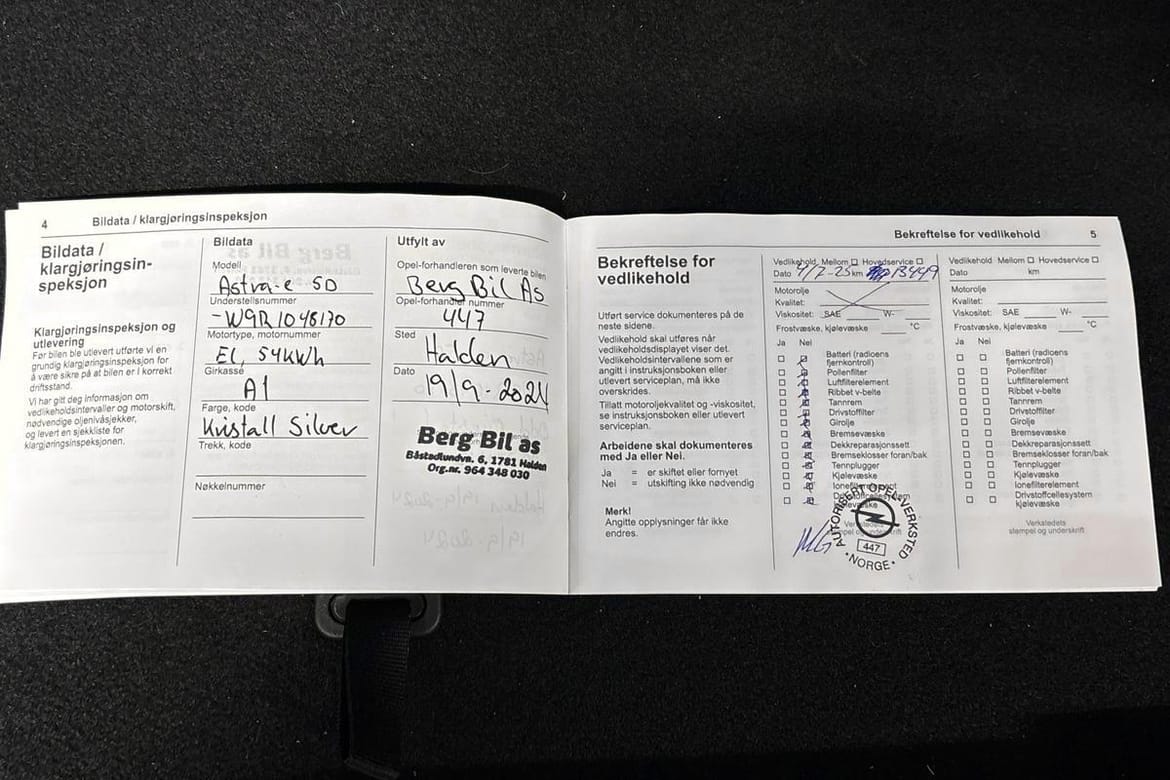 4
Bildata / klargjøringsinspeksjon
Bildata /
klargjøringsin-
speksjon
Klargjøringsinspeksjon og
utlevering
Før bilen ble utlevert utførte vi en
grundig klargjøringsinspeksjon for
å være sikre på at bilen er i korrekt
driftsstand.
Vi har gitt deg informasjon om
vedlikeholdsintervaller og motorskift,
nødvendige oljenivåsjekker,
og levert en sjekkliste for
klargjøringsinspeksjonen.
Bildata
Modell
Astra-e 5D
Understellsnummer
-W9R1048170
Motortype, motornummer
El, 54kWh
Girkasse
A1
Farge, kode
Kristall Silver
Trekk, kode
Nøkkelnummer
Utfylt av
Opel-forhandleren som leverte bilen
Berg Bil As
Opel-forhandler nummer
447
Sted
Halden
Dato
19/9-2024
Berg Bil as
Båstadlundvn. 6, 1781 Halden
Org.nr. 964 348 030
Bekreftelse for vedlikehold
5
Bekreftelse for
vedlikehold
Utført service dokumenteres på de
neste sidene.
Vedlikehold skal utføres når
vedlikeholdsdisplayet viser det.
Vedlikeholdsintervallene som er
angitt i instruksjonsboken eller
utlevert serviceplan, må ikke
overskrides.
Tillatt motoroljekvalitet og -viskositet,
se instruksjonsboken eller utlevert
serviceplan.
Arbeidene skal dokumenteres
med Ja eller Nei.
Ja = er skiftet eller fornyet
Nei = utskifting ikke nødvendig
Merk!
Angitte opplysninger får ikke
endres.
Vedlikehold Mellom Hovedservice
Dato 4/7-25 km 13449
Motorolje
Kvalitet:
Viskositet: SAE W-
Frostvæske, kjølevæske °C
Ja Nei
Batteri (radioens
fjernkontroll)
Pollenfilter
Luftfilterelement
Ribbet v-belte
Tannrem
Drivstoffilter
Girolje
Bremsevæske
Dekkreparasjonssett
Bremseklosser foran/bak
Tennplugger
Kjølevæske
Ionefilterelement
MG
AUTORISERT OPEL-VERKSTED
447
NORGE
Vedlikehold Mellom Hovedservice
Dato km
Motorolje
Kvalitet:
Viskositet: SAE W-
Frostvæske, kjølevæske °C
Ja Nei
Batteri (radioens
fjernkontroll)
Pollenfilter
Luftfilterelement
Ribbet v-belte
Tannrem
Drivstoffilter
Girolje
Bremsevæske
Dekkreparasjonssett
Bremseklosser foran/bak
Tennplugger
Kjølevæske
Ionefilterelement
Drivstoffcellesystem
kjølevæske
Verkstedets
stempel og underskrift